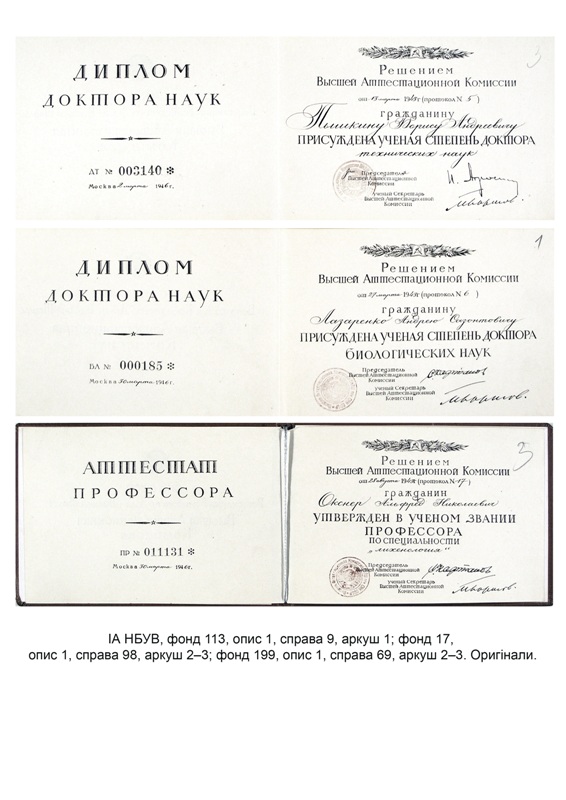 ДИПЛОМ
ДОКТОРА НАУК
АТ № 003140 *
Москва 1946 г.
3
Решением
Высшей Аттестационной Комиссии
от 13 марта 1943 г. (протокол № 5)
гражданину
Борису Андреевичу
ПРИСУЖДЕНА УЧЕНАЯ СТЕПЕНЬ ДОКТОРА
технических наук
Председатель
Высшей Аттестационной
Комиссии
Ученый Секретарь
Высшей Аттестационной
Комиссии
ДИПЛОМ
ДОКТОРА НАУК
БЛ № 000185 *
Москва 30 марта 1946 г.
1
Решением
Высшей Аттестационной Комиссии
от 27 марта (протокол № 6)
гражданину
Лазаренко Андрею Созонтовичу
ПРИСУЖДЕНА УЧЕНАЯ СТЕПЕНЬ ДОКТОРА
БИОЛОГИЧЕСКИХ НАУК
Председатель
Высшей Аттестационной
Комиссии
Ученый Секретарь
Высшей Аттестационной
Комиссии
АТТЕСТАТ
ПРОФЕССОРА
ПР № 011131 *
Москва 30 марта 1946 г.
3
Решением
Высшей Аттестационной Комиссии
от (протокол № 17)
гражданин
Окснер Альфред Николаевич
УТВЕРЖДЕН В УЧЕНОМ ЗВАНИИ
ПРОФЕССОРА
ПО СПЕЦИАЛЬНОСТИ
„лихенология“
Председатель
Высшей Аттестационной
Комиссии
Ученый Секретарь
Высшей Аттестационной
Комиссии
ІА НБУВ, фонд 113, опис 1, справа 9, аркуш 1; фонд 17,
опис 1, справа 98, аркуш 2–3; фонд 199, опис 1, справа 69, аркуш 2–3. Оригінали.